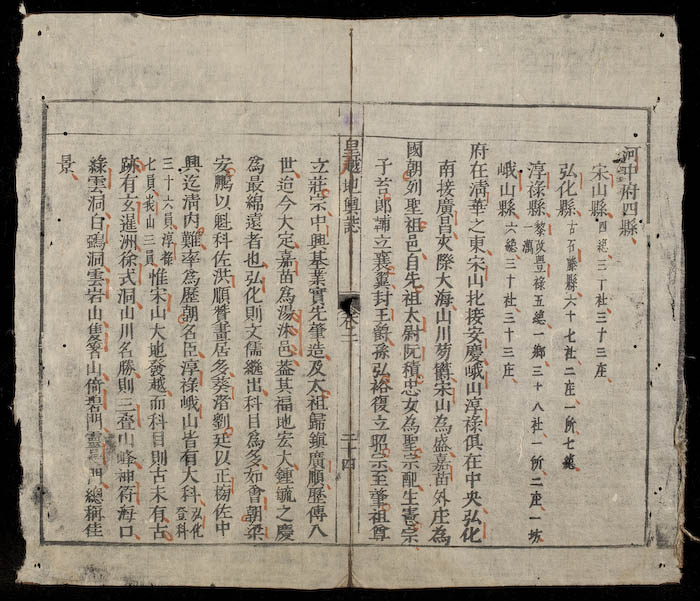 河中府四縣
宋山縣 四總三十社三十三庄
弘化縣 古石縣六十七社二庄一所七總
淳祿縣 黎改豐祿五總一鄉三十八社一所二庄一坊一灣
峨山縣 六總三十社三十三庄
府在清華之東宋山北接安慶峨山淳祿俱在中央弘化
南接廣昌夾際大海山川菊欝宋山為盛嘉苗外庄為
國朝列聖祖邑自先祖太尉阮積忠女為聖宗配生憲宗
子苔郎輔立襄翼封王爵孫弘裕復立昭宗至肇祖尊
皇越地輿誌
卷二
二十四
立莊宗中興基業實先肇造及太祖歸鎮廣順歷傳八
世迨今大定嘉苗為湯沐邑蓋其福地宏大鍾毓之慶
為最綿遠者也弘化則文儒繼出科目為多如會朝梁
安鵬以魁科佐洪順贊畫居多葵渚劉廷以正樹佐中
興迄清內難率為歷朝名臣淳祿峨山皆有大科 弘化登科
三十六員淳祿七員峨山三員 惟宋山大地發越而科目則古未有古
跡有文暹洲徐式洞山川名勝則三疊山峰神符海口
綠雲洞白鵶洞雲岩山雋箬山倚碧門靈長門總稱佳
景